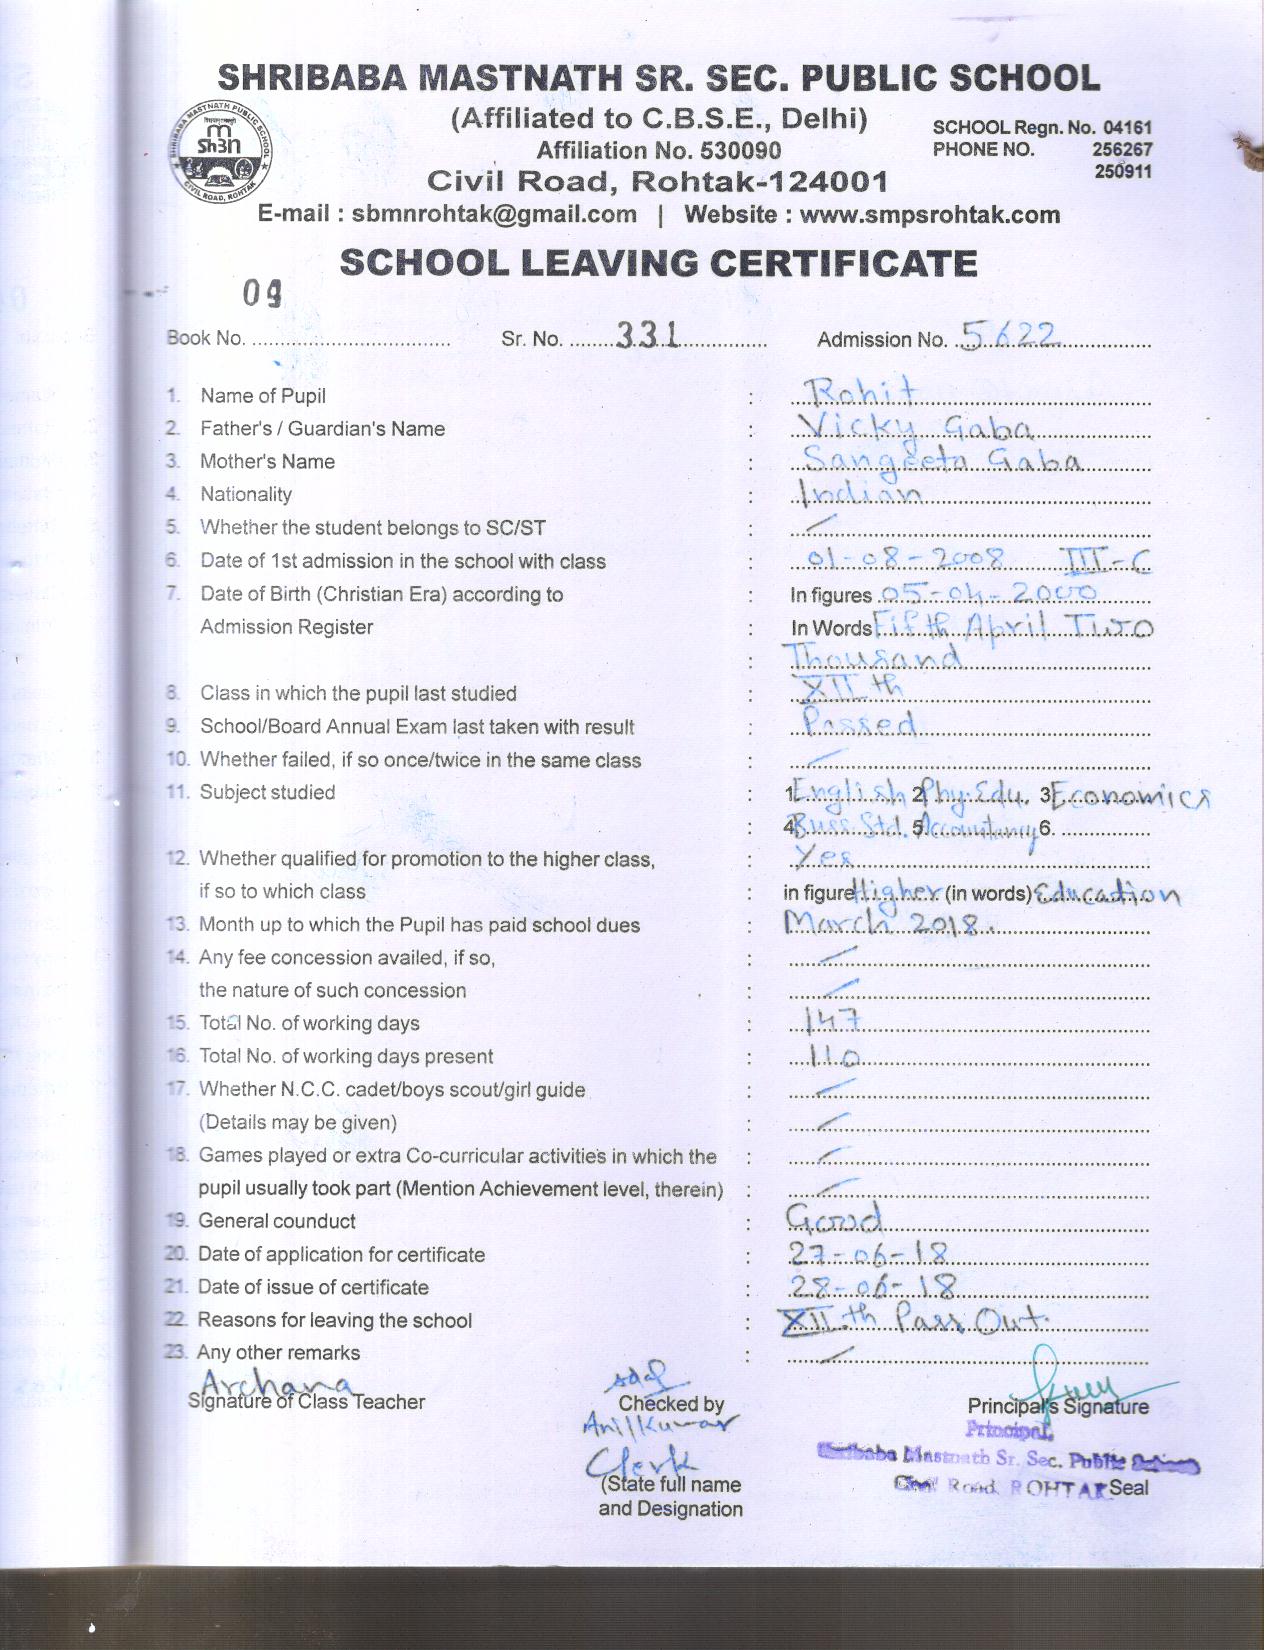 SHRIBABA MASTNATH SR. SEC. PUBLIC SCHOOL
(Affiliated to C.B.S.E., Delhi)
Affiliation No. 530090
SCHOOL Regn. No. 04161
PHONE NO. 256267
250911
SHRIBABA MASTNATH PUBLIC SCHOOL
CIVIL ROAD, ROHTAK
Civil Road, Rohtak-124001
E-mail : sbmnrohtak@gmail.com | Website : www.smpsrohtak.com
SCHOOL LEAVING CERTIFICATE
09
Book No. Sr. No. 331 Admission No. 5622
1. Name of Pupil : Rohit
2. Father's / Guardian's Name : Vicky Gaba
3. Mother's Name : Sangeeta Gaba
4. Nationality : Indian
5. Whether the student belongs to SC/ST :
6. Date of 1st admission in the school with class : 01-08-2008 III-C
7. Date of Birth (Christian Era) according to : In figures 05-04-2000
Admission Register : In Words Fifth April Two
: Thousand
8. Class in which the pupil last studied : XII th
9. School/Board Annual Exam last taken with result : Passed
10. Whether failed, if so once/twice in the same class :
11. Subject studied : 1 English 2 Phy. Edu. 3 Economics
: 4 Buss Std. 5 Accountancy 6.
12. Whether qualified for promotion to the higher class, : Yes
if so to which class : in figure Higher (in words) Education
13. Month up to which the Pupil has paid school dues : March 2018.
14. Any fee concession availed, if so, :
the nature of such concession :
15. Total No. of working days : 147
16. Total No. of working days present : 110
17. Whether N.C.C. cadet/boys scout/girl guide :
(Details may be given) :
18. Games played or extra Co-curricular activities in which the :
pupil usually took part (Mention Achievement level, therein) :
19. General counduct : Good
20. Date of application for certificate : 27-06-18
21. Date of issue of certificate : 28-06-18
22. Reasons for leaving the school : XII th Pass Out.
23. Any other remarks :
Archana
Signature of Class Teacher Checked by Principal's Signature
Anil Kumar Principal,
Clerk Mastnath Sr. Sec. Public
(State full name Road, ROHTAK Seal
and Designation